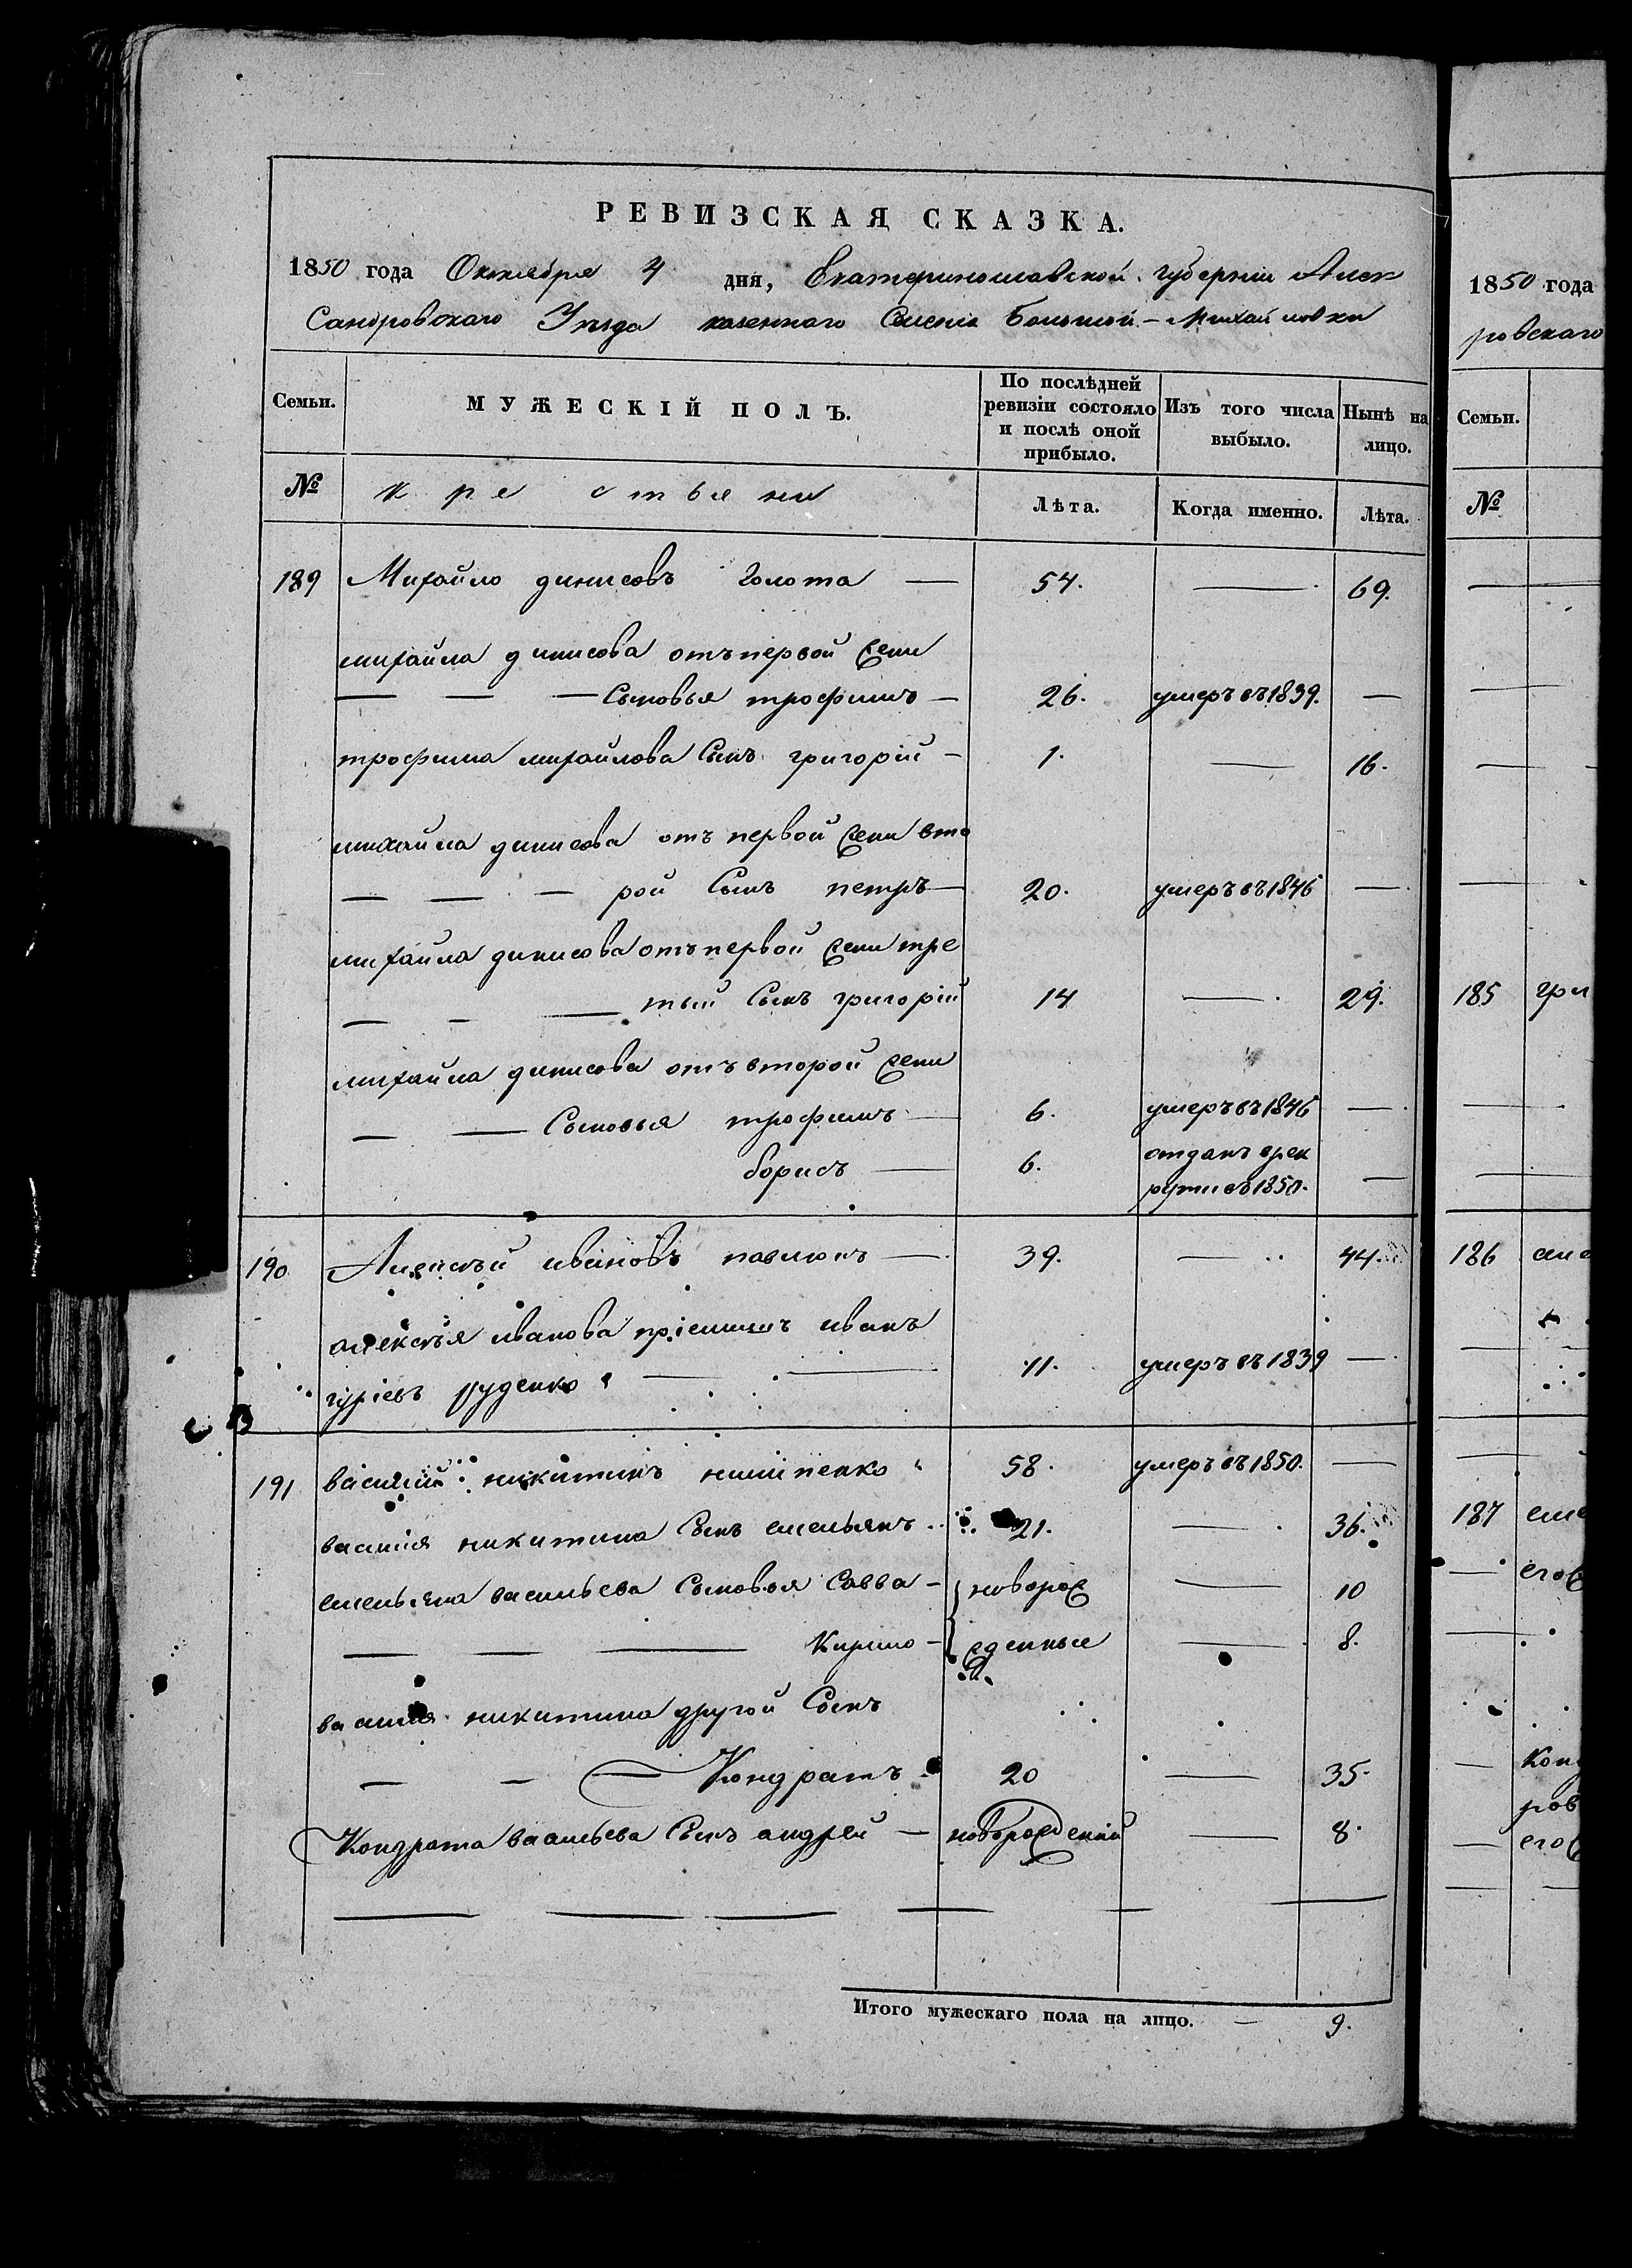 РЕВИЗСКАЯ СКАЗКА.
1850 года Октября 4 дня, Екатеринославской губернии Алек
Сандровскаго Уезда казеннаго Селенія Большой - Михайловки
Семьи. МУЖЕСКІЙ ПОЛЪ. По послѣдней ревизіи состояло и послѣ оной прибыло. Изъ того числа выбыло. Нынѣ на лицо.
№ крестьяни Лѣта. Когда именно. Лѣта.
189 Михайло динисовъ Голота — 54. — 69.
михайла динисова отъ первой жени
— — — Сыновья трофимъ — 26. умеръ въ 1839. —
трофима михайлова Сынъ григорій — 1. — 16.
михайла динисова отъ первой жени вто
— — — рой Сынъ петръ — 20. умеръ въ 1846 —
михайла динисова отъ первой жени тре
— — — тый Сынъ григорій 14 — 29.
михайла динисова отъ второй жени
— — Сыновья трофимъ — 6. умеръ въ 1846 —
борисъ — 6. отданъ врек
рути въ 1850. —
190 Алексѣй ивановъ павлюкъ — 39. — 44.
алексѣя иванова пріемишъ иванъ
гуріевъ руденко — — 11. умеръ въ 1839 —
191 василій никитинъ 58. умеръ въ 1850. —
василія никитина Сынъ емельянъ 21. — 36.
емельяна васильева Сыновья Савва — новорож — 10
— — — Кирило — жденные — 8.
василія никитина другой Сынъ
— — — Кондратъ 20 — 35.
Кондрата васильева Сынъ андрей — новорожденій — 8.
Итого мужескаго пола на лицо. — 9.
1850 года
ровскаго
Семьи.
№
185 гри
186
187 еме
его
Конд
ров
его